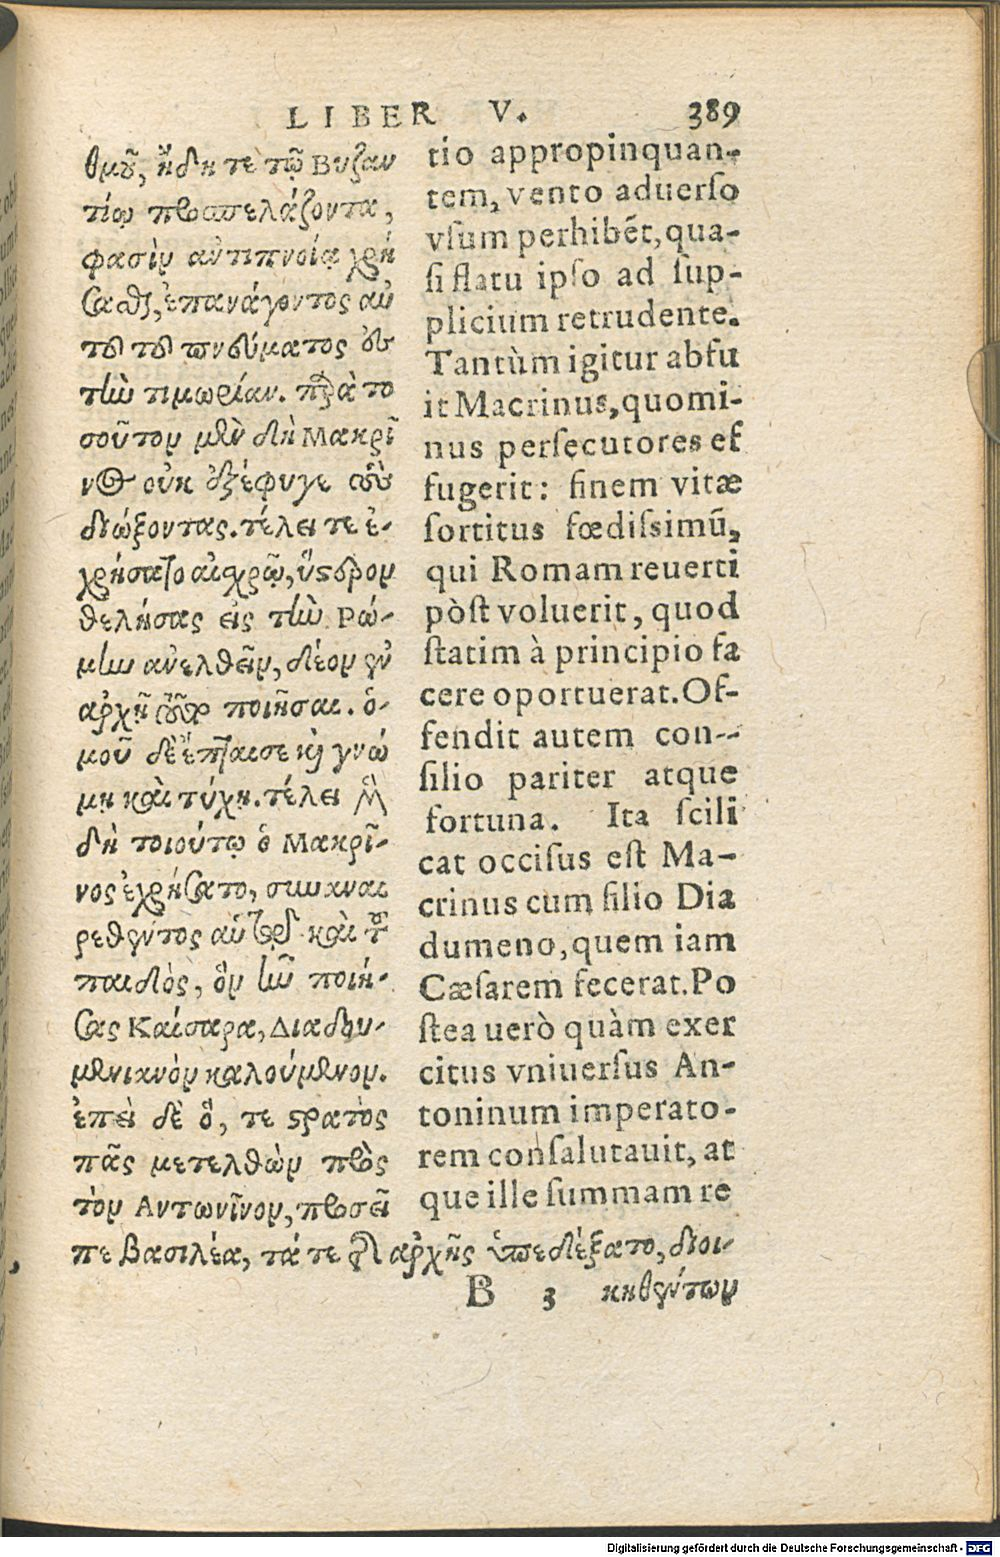 LIBER V. 389
θμοῦ, ἤδη τε τῷ Βυζαν
τίῳ προσπελάζοντα,
φασὶν ἀντιπνοίᾳ χρή
σαθαι, ἐπανάγοντος αὐ
τοῦ τοῦ πνεύματος εἰς
τὴν τιμωρίαν. παρὰ το
σοῦτον μὲν δὴ Μακρῖ
νος οὐκ ἐξέφυγε τοὺς
διώξοντας. τέλει τε ἐ-
χρήσατο αἰσχρῷ, ὕστερον
θελήσας εἰς τὴν Ρώ-
μην ἀνελθεῖν, δέον ἐν
ἀρχῇ τοῦτο ποιῆσαι. ὁ-
μοῦ δὲ ἔπταισε καὶ γνώ
μῃ καὶ τύχῃ. τέλει μὲν
δὴ τοιούτῳ ὁ Μακρῖ-
νος ἐχρήσατο, συναναι
ρεθέντος αὐτῷ καὶ τοῦ
παιδὸς, ὃν ἦν ποιή-
σας Καίσαρα, Διαδου-
μενιανὸν καλούμενον.
ἐπεὶ δὲ ὅ, τε στρατὸς
πᾶς μετελθὼν πρὸς
τὸν Αντωνῖνον, προσεῖ
πε βασιλέα, τά τε τῆς ἀρχῆς ὑπεδέξατο, διοι-
tio appropinquan-
tem, vento aduerſo
vſum perhibẽt, qua-
ſi flatu ipſo ad ſup-
plicium retrudente.
Tantùm igitur abfu
it Macrinus, quomi-
nus perſecutores ef
fugerit: finem vitæ
ſortitus fœdiſsimũ,
qui Romam reuerti
pòſt voluerit, quod
ſtatim à principio fa
cere oportuerat. Of-
fendit autem con--
ſilio pariter atque
fortuna. Ita ſcili
cat occiſus eſt Ma-
crinus cum filio Dia
dumeno, quem iam
Cæſarem fecerat. Po
ſtea uerò quàm exer
citus vniuerſus An-
toninum imperato-
rem conſalutauit, at
que ille ſummam re
B 3 κηθέντων
Digitalisierung gefördert durch die Deutsche Forschungsgemeinschaft - DFG